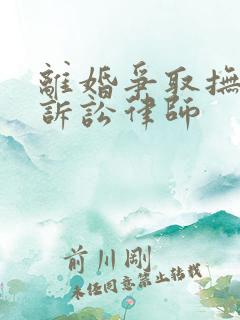 離婚爭取撫
訴訟律師
前川剛
未經同意禁止轉載